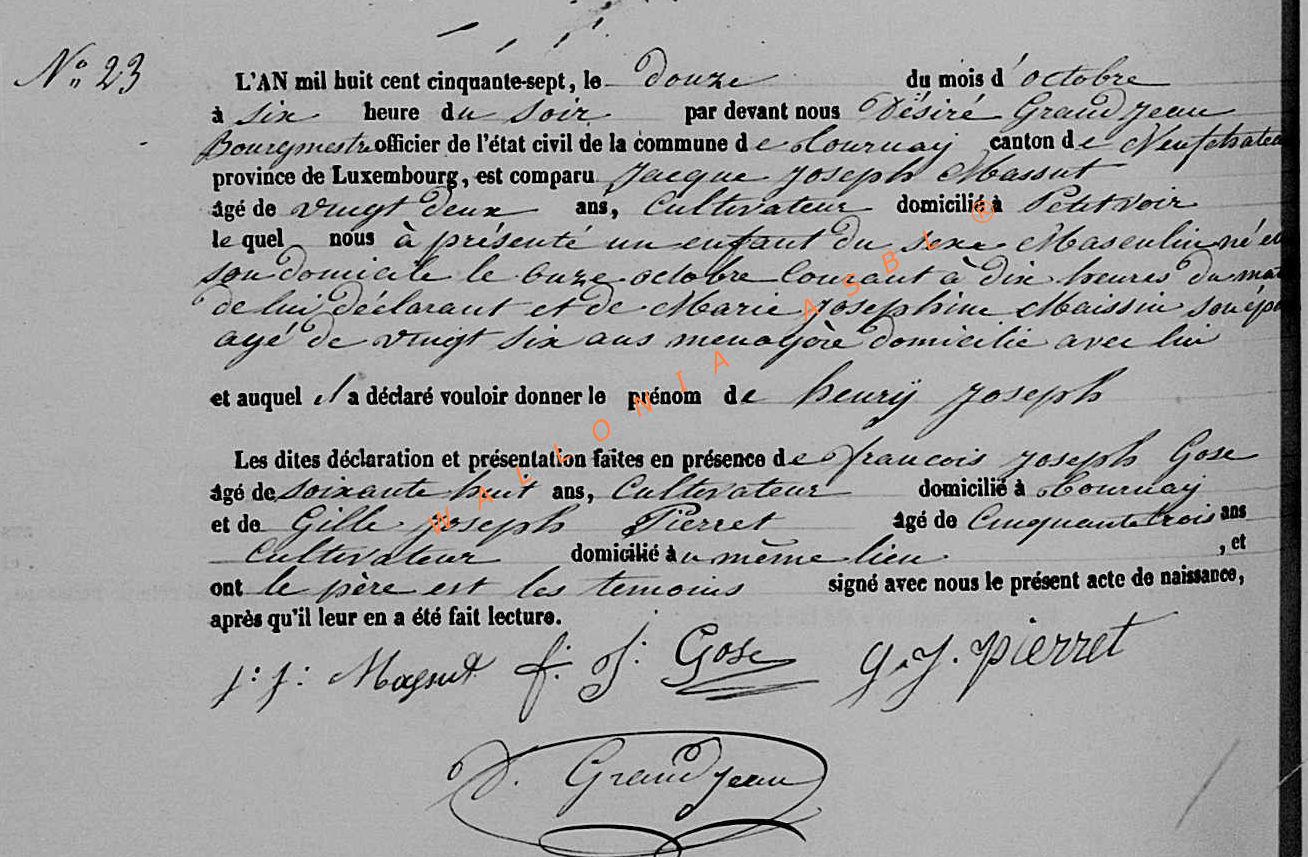 N° 23
L'AN mil huit cent cinquante-sept, le douze du mois d'octobre
à six heure du soir par devant nous Désiré Grandjean
Bourgmestre officier de l'état civil de la commune de Tournay canton de Neufchateau
province de Luxembourg, est comparu Jacque Joseph Massut
âgé de vingt deux ans, Cultivateur domicilié à Petitvoir
le quel nous à présenté un enfant du sexe Masculin né en
son domicile le onze octobre Courant à dix heures du mat
de lui déclarant et de Marie Josephine Maissin son épo
agé de vingt six ans menagère domicilié avec lui
et auquel il a déclaré vouloir donner le prénom de henry Joseph
Les dites déclaration et présentation faites en présence de francois Joseph Gose
âgé de soixante huit ans, Cultivateur domicilié à Tournay
et de Gille Joseph Pierret âgé de Cinquante trois ans
Cultivateur domicilié au même lieu , et
ont le père est les temoins signé avec nous le présent acte de naissance,
après qu'il leur en a été fait lecture.
j: j: Massut f: J: Gose g. J. pierret
D. Grandjean
WALLONIA ASBL ®